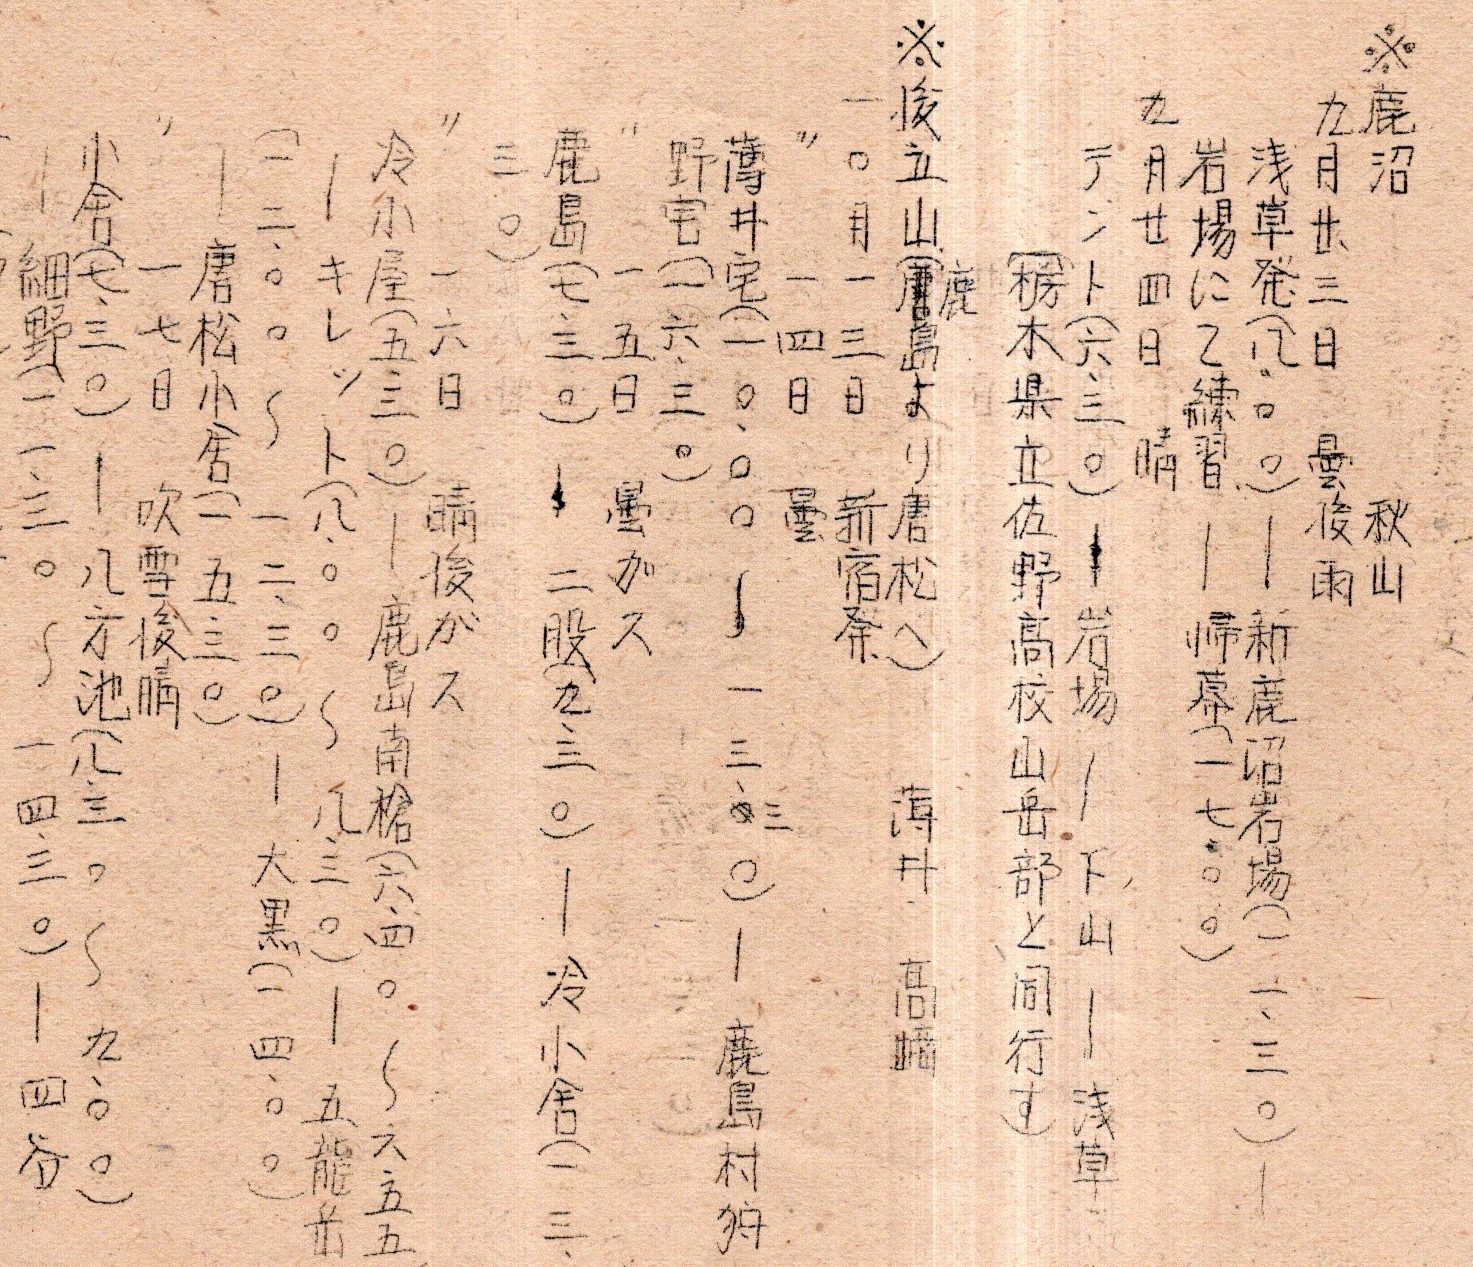 ※鹿沼 秋山
九月廿三日 曇後雨
浅草発(八.〇〇)―新鹿沼岩場(一一、三〇)―
岩場にて練習 ― 帰幕(一七、〇〇)
九月廿四日 晴
テント(六、三〇)―岩場―下山―浅草
(栃木県立佐野高校山岳部と同行す)
※後立山(鹿島より唐松へ) 薄井 高橋
一〇月一三日 新宿発
〃 一四日 曇
薄井宅(一〇、〇〇〜一三、三〇)―鹿島村狩
野宅(一六、三〇)
〃 一五日 曇ガス
鹿島(七、三〇)―二股(九、三〇)―冷小舎(一三、
三〇)
〃 一六日 晴後ガス
冷小屋(五、三〇)―鹿島南槍(六、四〇〜六五五
―キレット(八、〇〇〜八、三〇)―五龍岳
(一二、〇〇〜一二、三〇)―大黒(一四、〇〇)
―唐松小舎(一五、三〇)
〃 一七日 吹雪後晴
小舎(七、三〇)―八方池(八、三〇〜九、〇〇)
―細野(一一、三〇〜一四、三〇)―四谷